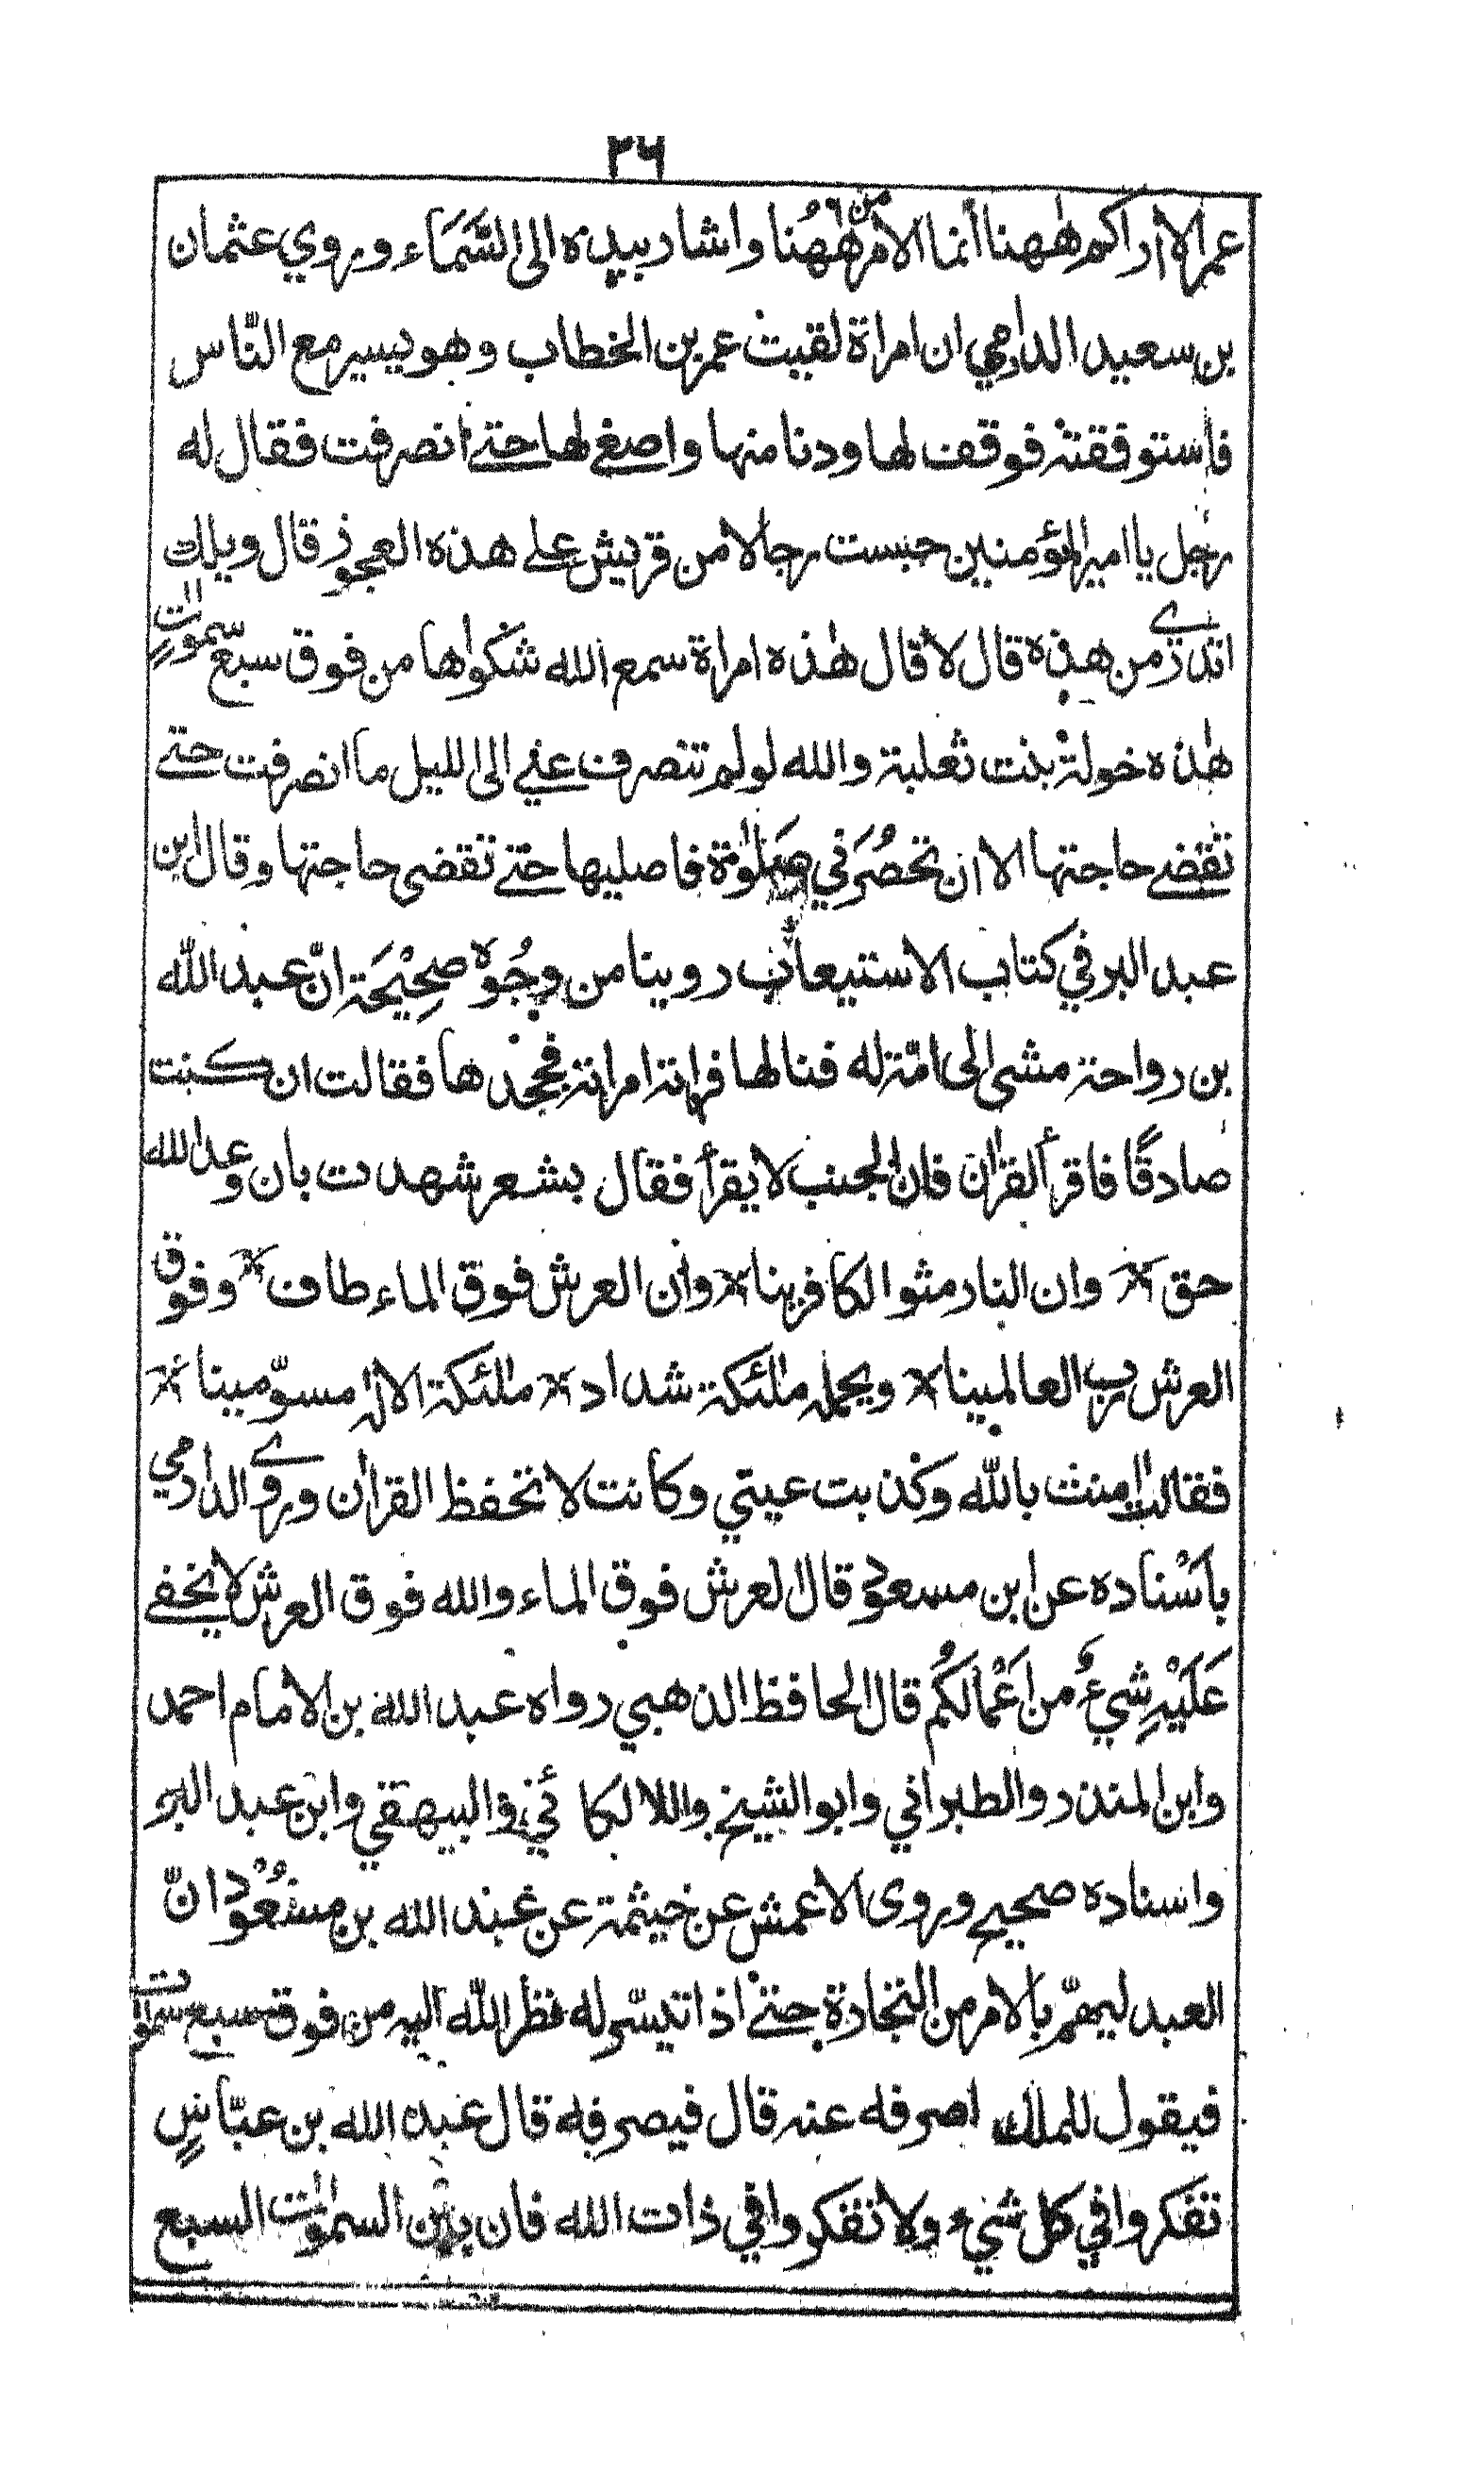 ٢٦
عمر لا اراكم ههنا انما الامر من ههُنا واشار بيده الى السَّمَاء وروي عثمان
بن سعيد الدارمي ان امراة لقيت عمر بن الخطاب وهو يسير مع النّاس
فاستوقفته فوقف لها ودنا منها واصغى لها حتى انصرفت فقال له
رجل يا امير المؤمنين حبست رجالا من قريش على هذه العجوز قال ويلك
اتدري من هذه قال لا قال هٰذه امراة سمع الله شكواها من فوق سبع سموتٍ
هٰذه خولة بنت ثعلبة والله لو لم تنصرف عني الى الليل ما انصرفت حتى
تقضى حاجتها الا ان تحضُرَني صَلوٰة فاصليها حتى تقضى حاجتها وقال ابن
عبد البر في كتاب الاستيعاب روينا من وجُوه صحِيْحَة انّ عبد اللّٰه
بن رواحة مشى الى امّة له فنالها فراته امراته فجحدها فقالت ان كنت
صادقًا فاقرأ القراٰن فان الجنب لا يقرأ فقال بشعر شهدت بان وعد الله
حق * وان النار مثوا الكافرينا * وان العرش فوق الماء طاف * وفوق
العرش رب العالمينا * ويحمله ملٰئكة شداد * ملٰئكة الالٰه مسوّمينا *
فقالت اٰمنت باللّٰه وكذبت عيني وكانت لا تحفظ القراٰن وروى الدارمي
باسْناده عن ابن مسعود قال العرش فوق الماء والله فوق العرش لا يخفى
عَلَيْهِ شيءٌ من اعْمَالكُم قال الحافظ الذهبي رواه عبد الله بن الامام احمد
وابن المنذر والطبراني وابو الشيخ واللالكائي والبيهقي وابن عبد البر
واسناده صحيح وروى الاعمش عن خيثمة عن عبد الله بن مسْعُود انّ
العبد ليهمّ بالامر من التجارة حتى اذا تيسّر له نظر اللّٰه اليه من فوق سبع سموات
فيقول للملك اصرفه عنه قال فيصرفه قال عبد الله بن عبّاسٍ
تفكروا في كل شيء ولا تفكروا في ذات الله فان بين السموٰت السبع